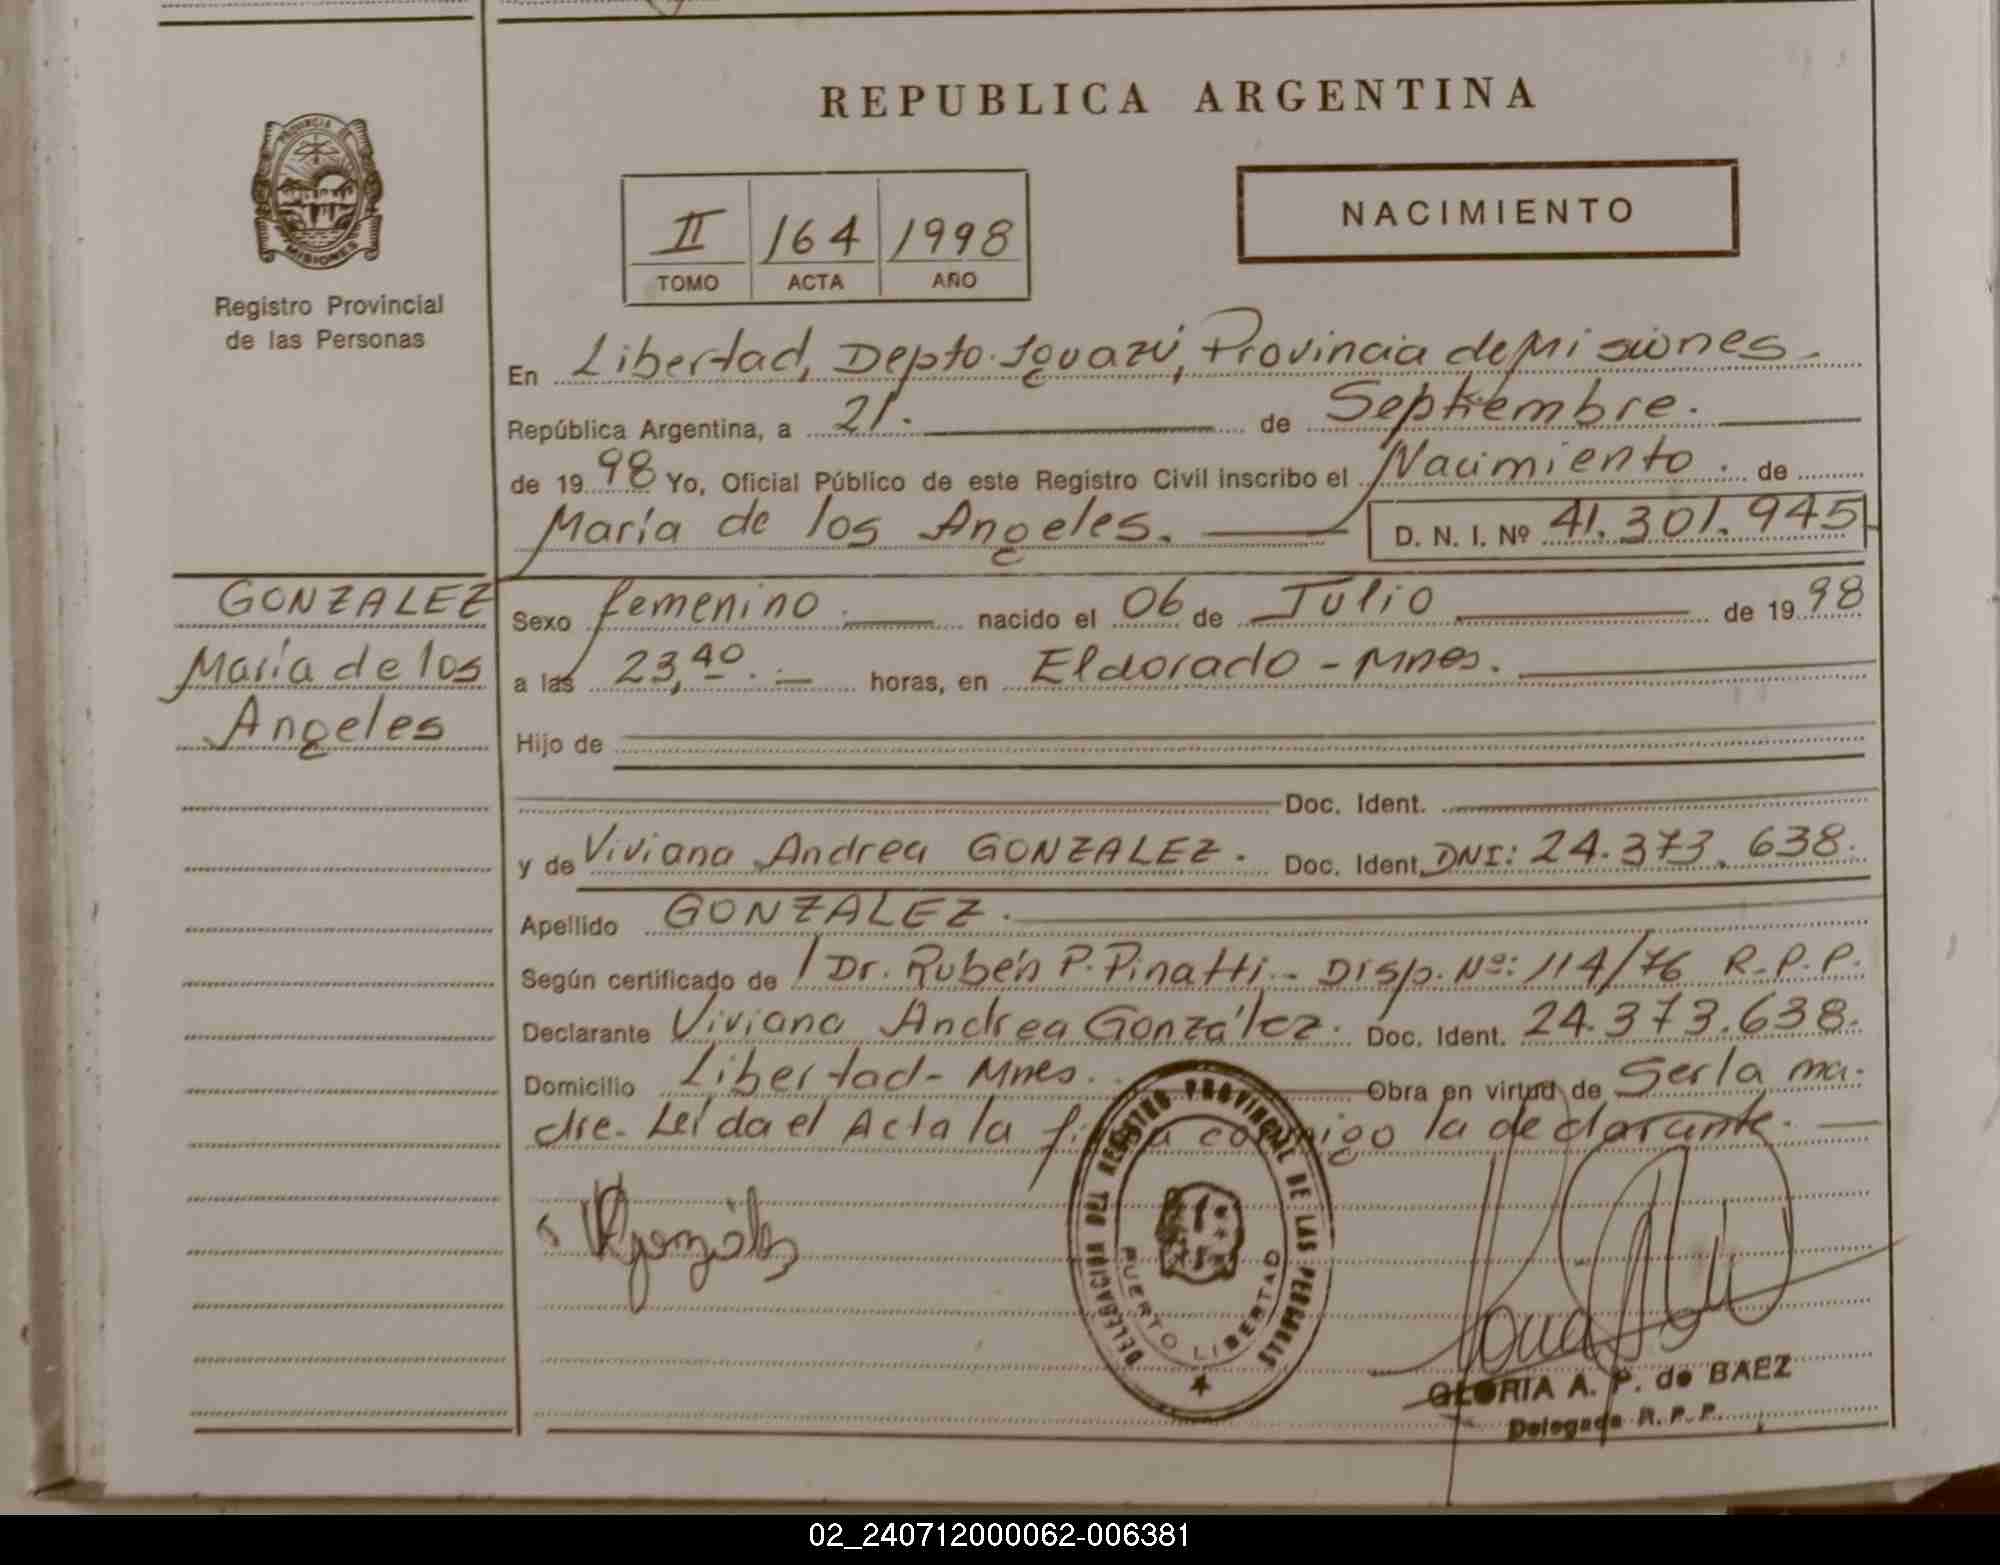 REPUBLICA ARGENTINA
PROVINCIA DE MISIONES
Registro Provincial
de las Personas
II 164 1998
TOMO ACTA AÑO
NACIMIENTO
En Libertad, Depto. Iguazú, Provincia de Misiones.
República Argentina, a 21. de Septiembre.
de 1998 Yo, Oficial Público de este Registro Civil inscribo el Nacimiento. de
María de los Angeles. D. N. I. Nº 41.301.945
GONZALEZ
María de los
Angeles
Sexo femenino. nacido el 06 de Julio de 1998
a las 23,40. horas, en Eldorado - Mnes.
Hijo de
Doc. Ident.
y de Viviana Andrea GONZALEZ. Doc. Ident. DNI: 24.373.638.
Apellido GONZALEZ.
Según certificado de Dr. Rubén P. Pinatti - Disp. Nº: 114/76 R.P.P.
Declarante Viviana Andrea González. Doc. Ident. 24.373.638.
Domicilio Libertad - Mnes. Obra en virtud de Ser la ma-
dre. Leída el Acta la firma conmigo la declarante.
DELEGACION DEL REGISTRO PROVINCIAL DE LAS PERSONAS
PUERTO LIBERTAD
GLORIA A. P. de BAEZ
Delegada R. P. P.
02_240712000062-006381